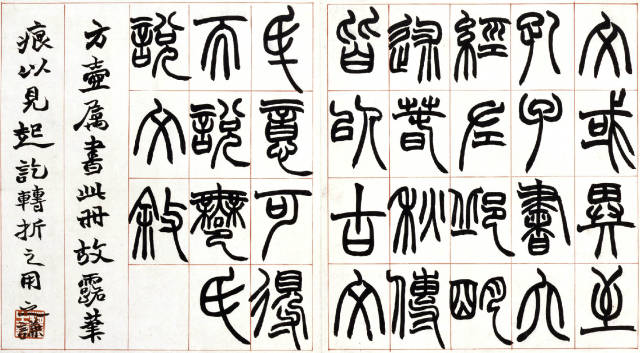 文或異至
孔子書六
經左邱明
述春秋傳
皆以古文
氒意可得
而說鄦氏
說文敘
方壺屬書此冊故露筆
痕以見起訖轉折之用之謙